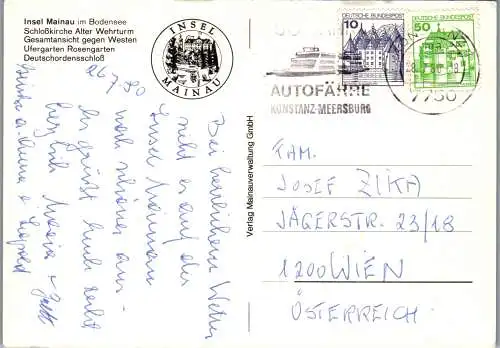 Insel Mainau im Bodensee
Schloßkirche Alter Wehrturm
Gesamtansicht gegen Westen
Ufergarten Rosengarten
Deutschordensschloß
INSEL
MAINAU
26.7.80
Bei herrlichem Wetter
ist es auf der
Insel Mainau
noch schöner
Es grüßt Euch recht
herzlich Maria +
Verlag Mainauverwaltung GmbH
10 DEUTSCHE BUNDESPOST
50 DEUTSCHE BUNDESPOST
AUTOFÄHRE
KONSTANZ-MEERSBURG
7750
FAM.
JOSEF ZIKA
JÄGERSTR. 23/18
1200 WIEN
ÖSTERREICH